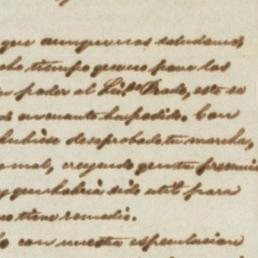 que aunque nos saludamos
tiempo que no para los
poder al Lic.do Prado, esto se
en cuanto ha podido. Con
hubiese desaprobado tu marcha,
mal, creyendo que tu presencia
y que habria sido util para
no tiene remedio.
con nuestra espectacion